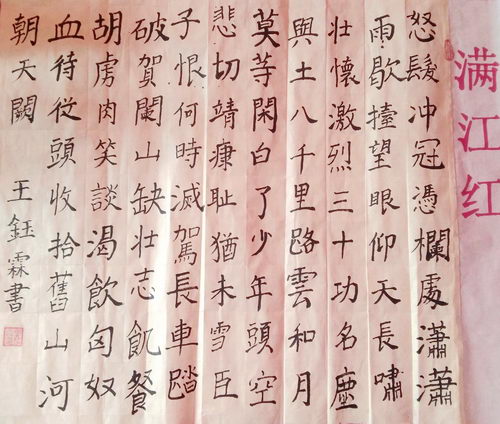 满江红
怒髮冲冠憑欄處瀟瀟
雨歇擡望眼仰天長嘯
壯懷激烈三十功名塵
與土八千里路雲和月
莫等閑白了少年頭空
悲切靖康耻猶未雪臣
子恨何時滅駕長車踏
破賀闌山缺壯志飢餐
胡虜肉笑談渴飲匈奴
血待從頭收拾舊山河
朝天闕
王鈺霖書